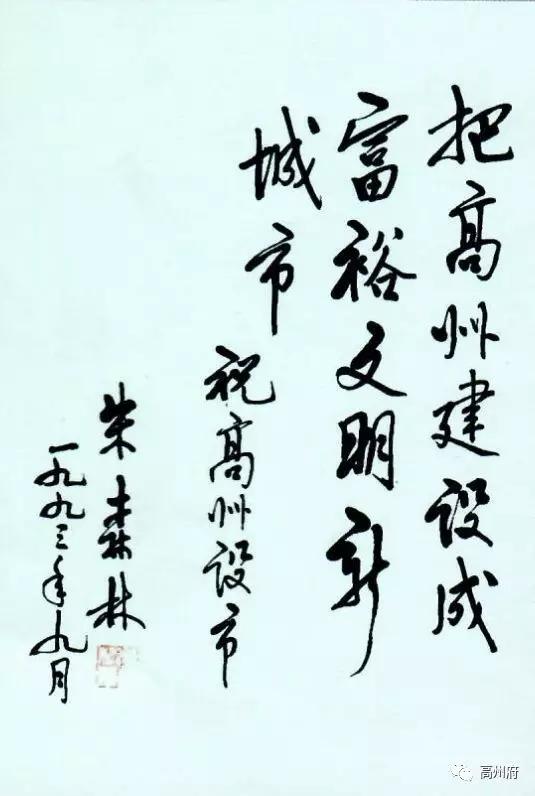 把高州建设成
富裕文明新
城市
祝高州设市
朱森林
一九九三年九月
高州府